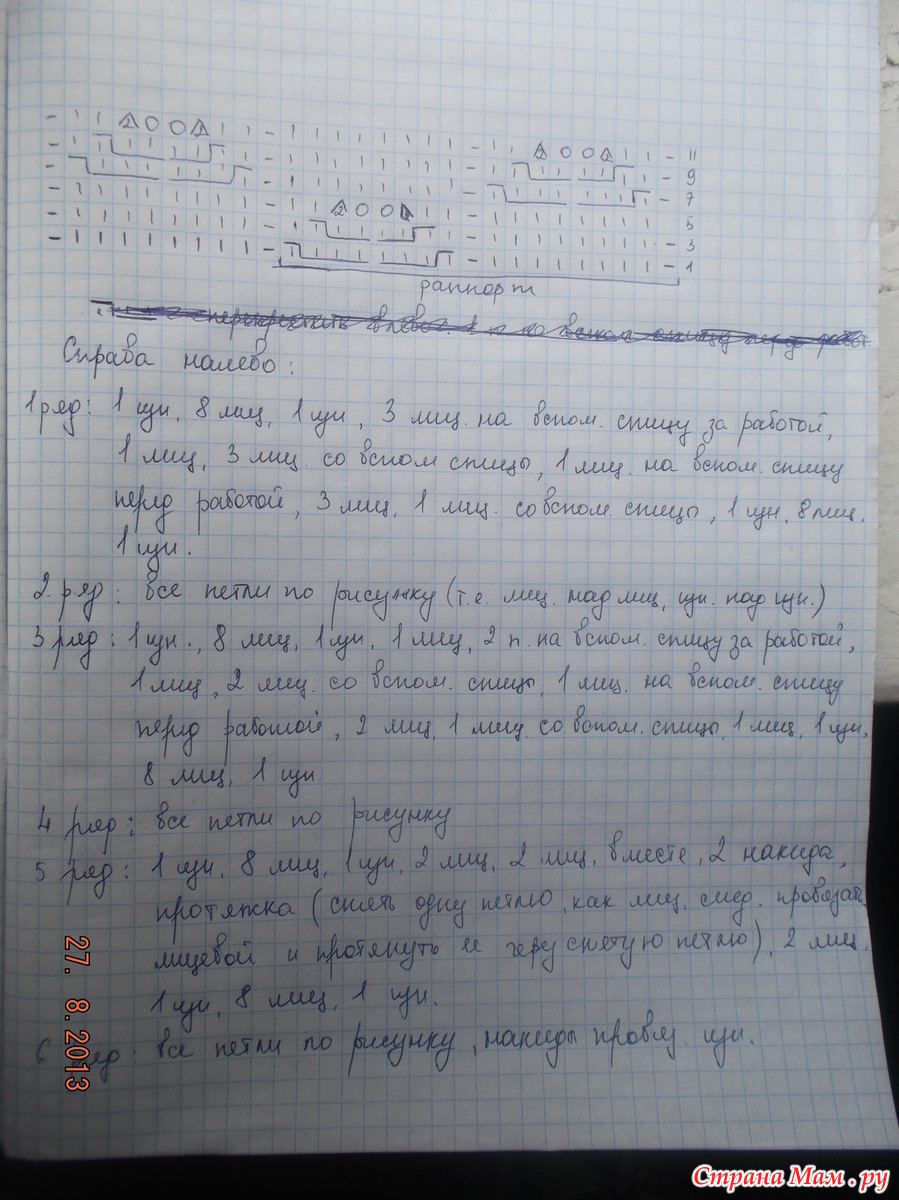 11
9
7
5
3
1
раппорт
Справа налево:
1 ряд: 1 изн, 8 лиц, 1 изн, 3 лиц. на вспом. спицу за работой,
1 лиц, 3 лиц. со вспом спицы, 1 лиц. на вспом. спицу
перед работой, 3 лиц, 1 лиц. со вспом. спицы, 1 изн, 8 лиц,
1 изн.
2 ряд: все петли по рисунку (т.е. лиц. над лиц, изн. над изн.)
3 ряд: 1 изн., 8 лиц, 1 изн, 1 лиц, 2 п. на вспом. спицу за работой,
1 лиц, 2 лиц. со вспом. спицы, 1 лиц. на вспом. спицу
перед работой, 2 лиц, 1 лиц со вспом. спицы, 1 лиц, 1 изн,
8 лиц, 1 изн
4 ряд: все петли по рисунку
5 ряд: 1 изн, 8 лиц, 1 изн, 2 лиц, 2 лиц. вместе, 2 накида,
протяжка (снять одну петлю, как лиц, след. провязать
лицевой и протянуть ее через снятую петлю), 2 лиц.
1 изн, 8 лиц, 1 изн.
6 ряд: все петли по рисунку, накиды провяз. изн.
27. 8.2013
Страна Мам.ру